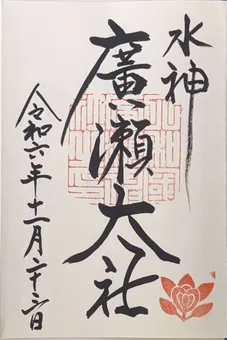 水神
廣瀬大社
令和六年十一月二十六日